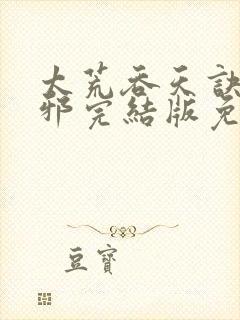 大荒吞天訣
邪完結版免
豆寶